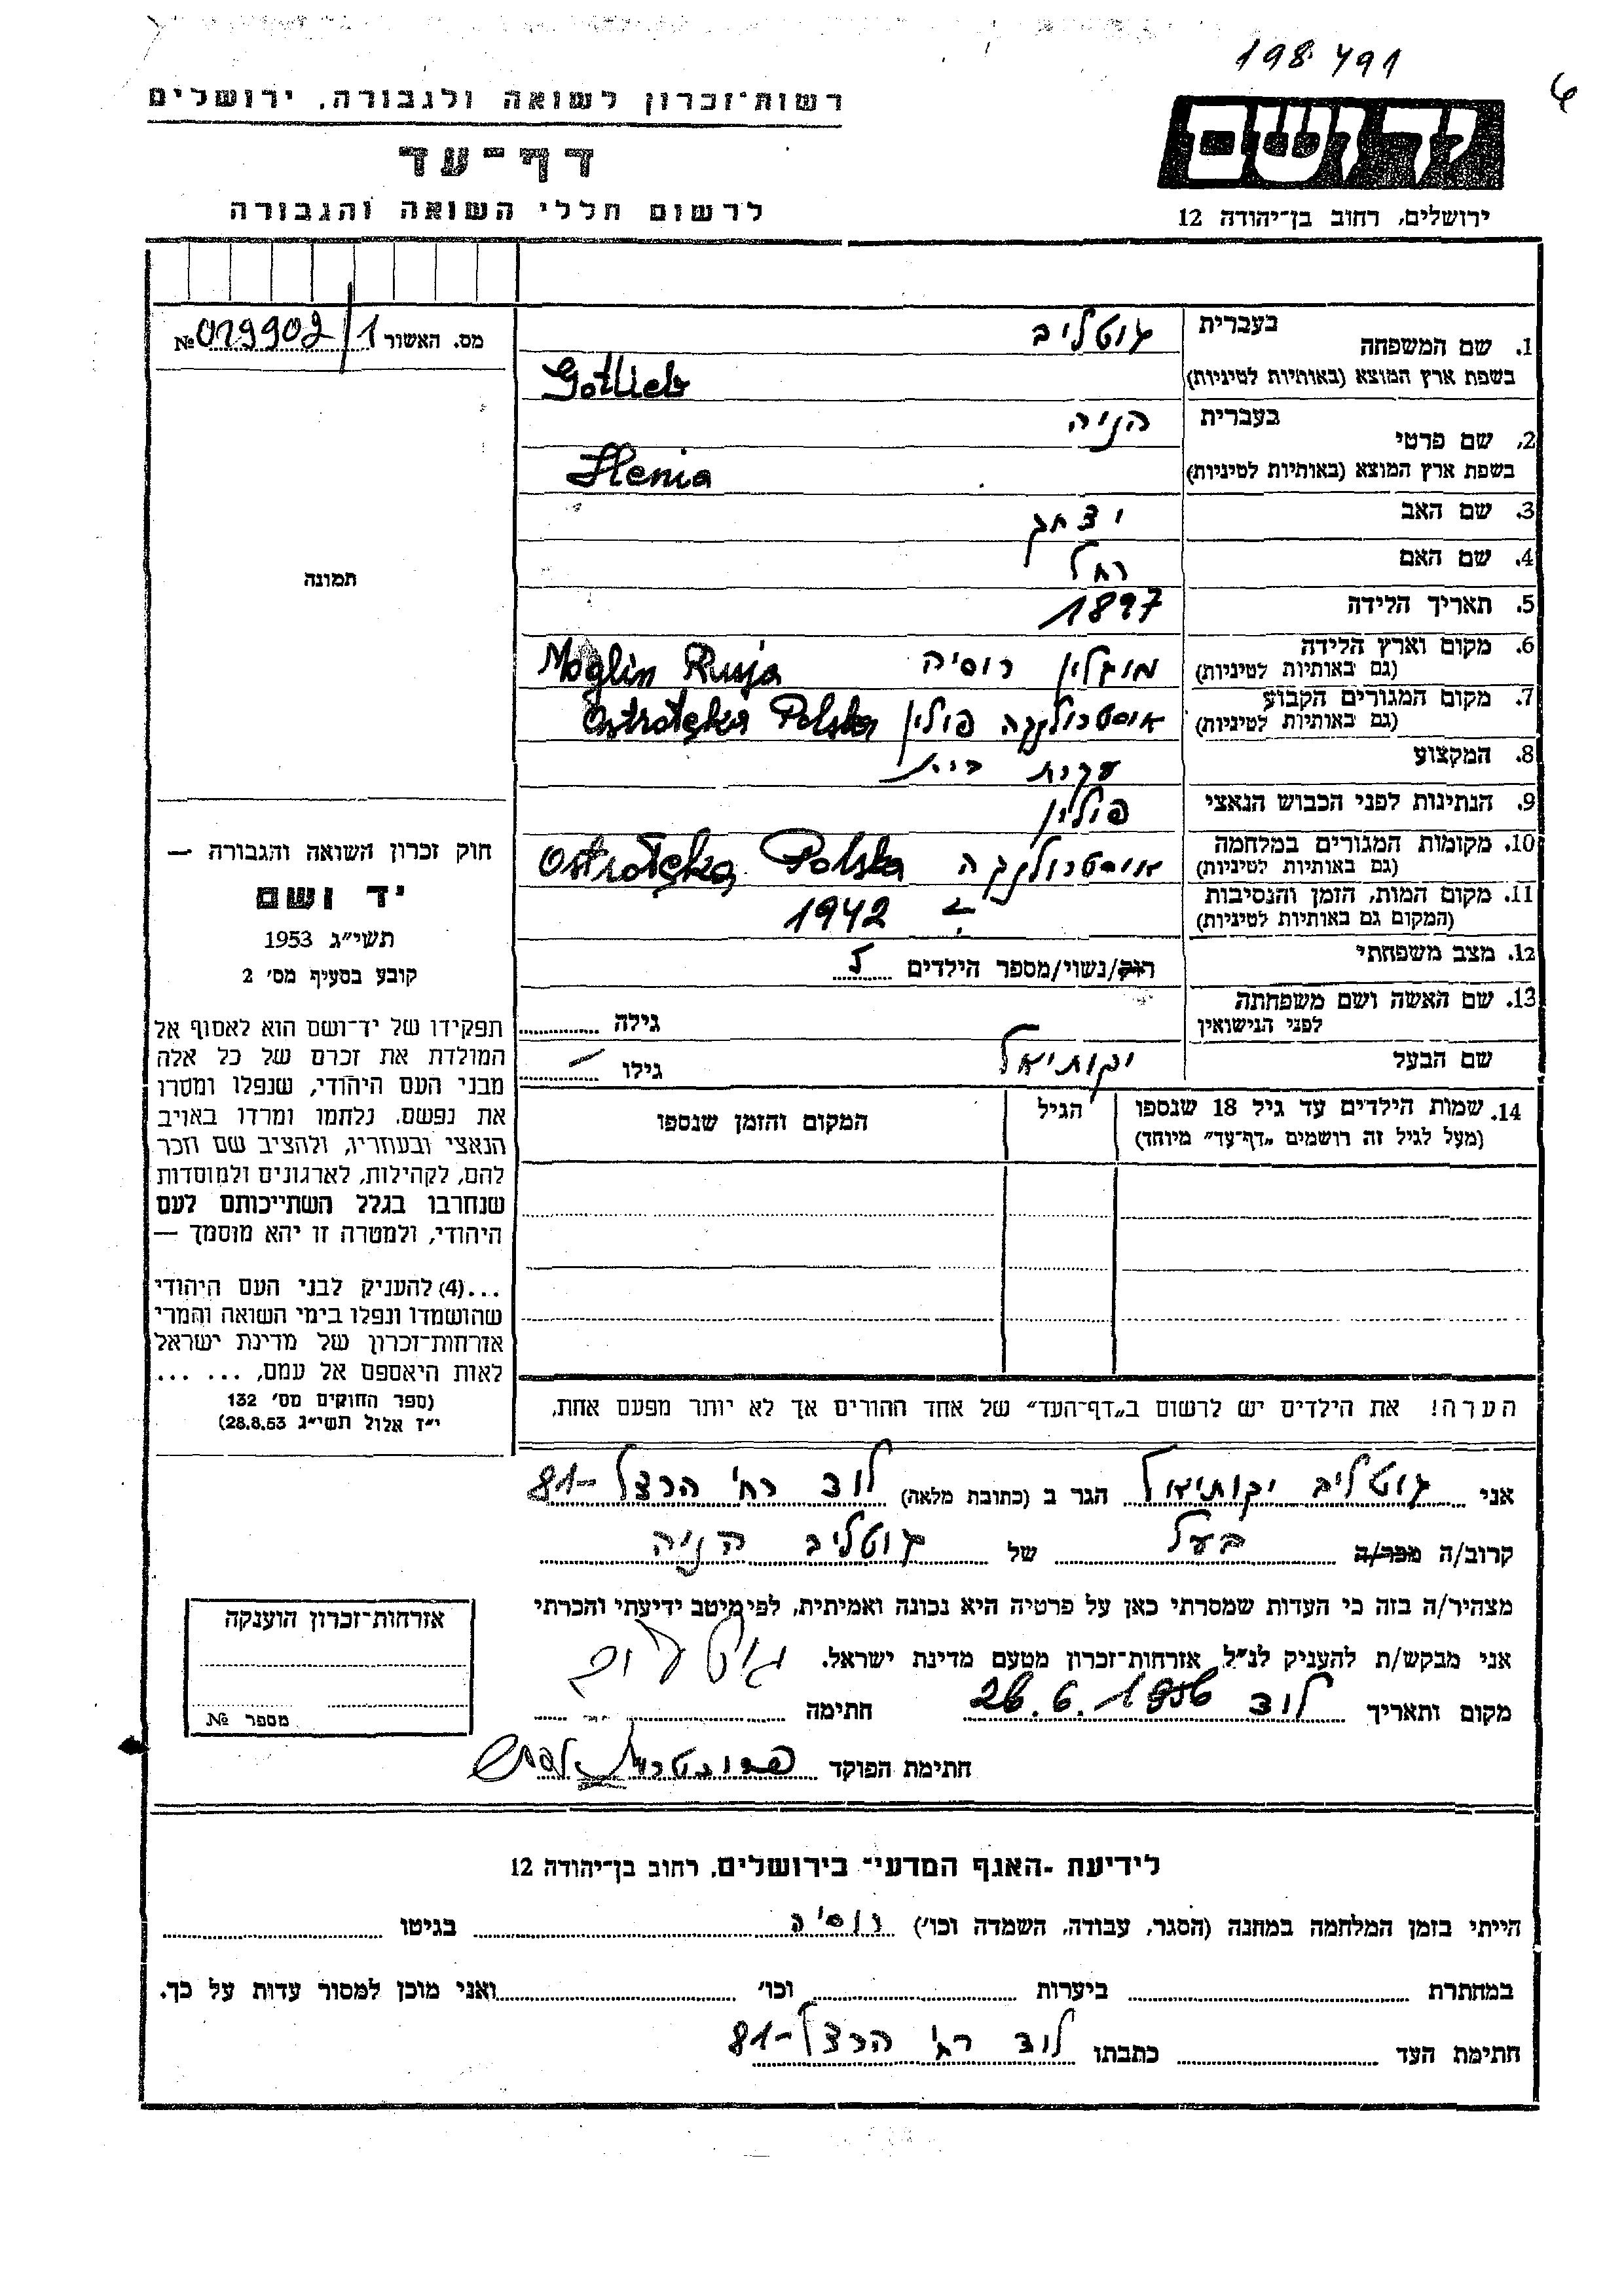 198491
6
יד ושם
ירושלים, רחוב בן־יהודה 12
רשות־זכרון לשואה ולגבורה, ירושלים
דף־עד
לרשום חללי השואה והגבורה
מס. האשור 1/019902 №
תמונה
1. שם המשפחה בעברית גוטליב
בשפת ארץ המוצא (באותיות לטיניות) Gotlieb
2. שם פרטי בעברית הניה
בשפת ארץ המוצא (באותיות לטיניות) Henia
3. שם האב יצחק
4. שם האם רחל
5. תאריך הלידה 1897
6. מקום וארץ הלידה (גם באותיות לטיניות) מוגלין רוסיה Moglin Rusja
7. מקום המגורים הקבוע (גם באותיות לטיניות) אוסטרולנקה פולין Ostrołęka Polska
8. המקצוע עקרת בית
9. הנתינות לפני הכבוש הנאצי פולין
10. מקומות המגורים במלחמה (גם באותיות לטיניות) אוסטרולנקה Ostrołęka Polska
11. מקום המות, הזמן והנסיבות (המקום גם באותיות לטיניות) ב 1942
12. מצב משפחתי רוק/נשוי/מספר הילדים 5
13. שם האשה ושם משפחתה לפני הנישואין גילה
שם הבעל יקותיאל גילו —
14. שמות הילדים עד גיל 18 שנספו הגיל המקום והזמן שנספו
(מעל לגיל זה רושמים „דף־עד” מיוחד)
הערה! את הילדים יש לרשום ב„דף־העד” של אחד ההורים אך לא יותר מפעם אחת.
חוק זכרון השואה והגבורה —
יד ושם
תשי״ג 1953
קובע בסעיף מס׳ 2
תפקידו של יד־ושם הוא לאסוף אל
המולדת את זכרם של כל אלה
מבני העם היהודי, שנפלו ומסרו
את נפשם, נלחמו ומרדו באויב
הנאצי ובעוזריו, ולהציב שם וזכר
להם, לקהילות, לארגונים ולמוסדות
שנחרבו בגלל השתייכותם לעם
היהודי, ולמטרה זו יהא מוסמך —
...(4) להעניק לבני העם היהודי
שהושמדו ונפלו בימי השואה והמרי
אזרחות־זכרון של מדינת ישראל
לאות היאספם אל עמם, ... ...
(ספר החוקים מס׳ 132
י״ז אלול תשי״ג 28.8.53)
אני גוטליב יקותיאל הגר ב (כתובת מלאה) לוד רח׳ הרצל 81-
קרוב/ה מכר/ה בעל של גוטליב הניה
מצהיר/ה בזה כי העדות שמסרתי כאן על פרטיה היא נכונה ואמיתית, לפי מיטב ידיעתי והכרתי
אני מבקש/ת להעניק לנ״ל אזרחות־זכרון מטעם מדינת ישראל.
מקום ותאריך לוד 26.6.1956 חתימה
חתימת הפוקד
אזרחות־זכרון הוענקה
מספר №
לידיעת ־האגף המדעי־ בירושלים, רחוב בן־יהודה 12
הייתי בזמן המלחמה במחנה (הסגר, עבודה, השמדה וכו׳) רוסיה בגיטו
במחתרת ביערות וכו׳ ואני מוכן למסור עדות על כך.
חתימת העד כתבתו לוד רח׳ הרצל 81-